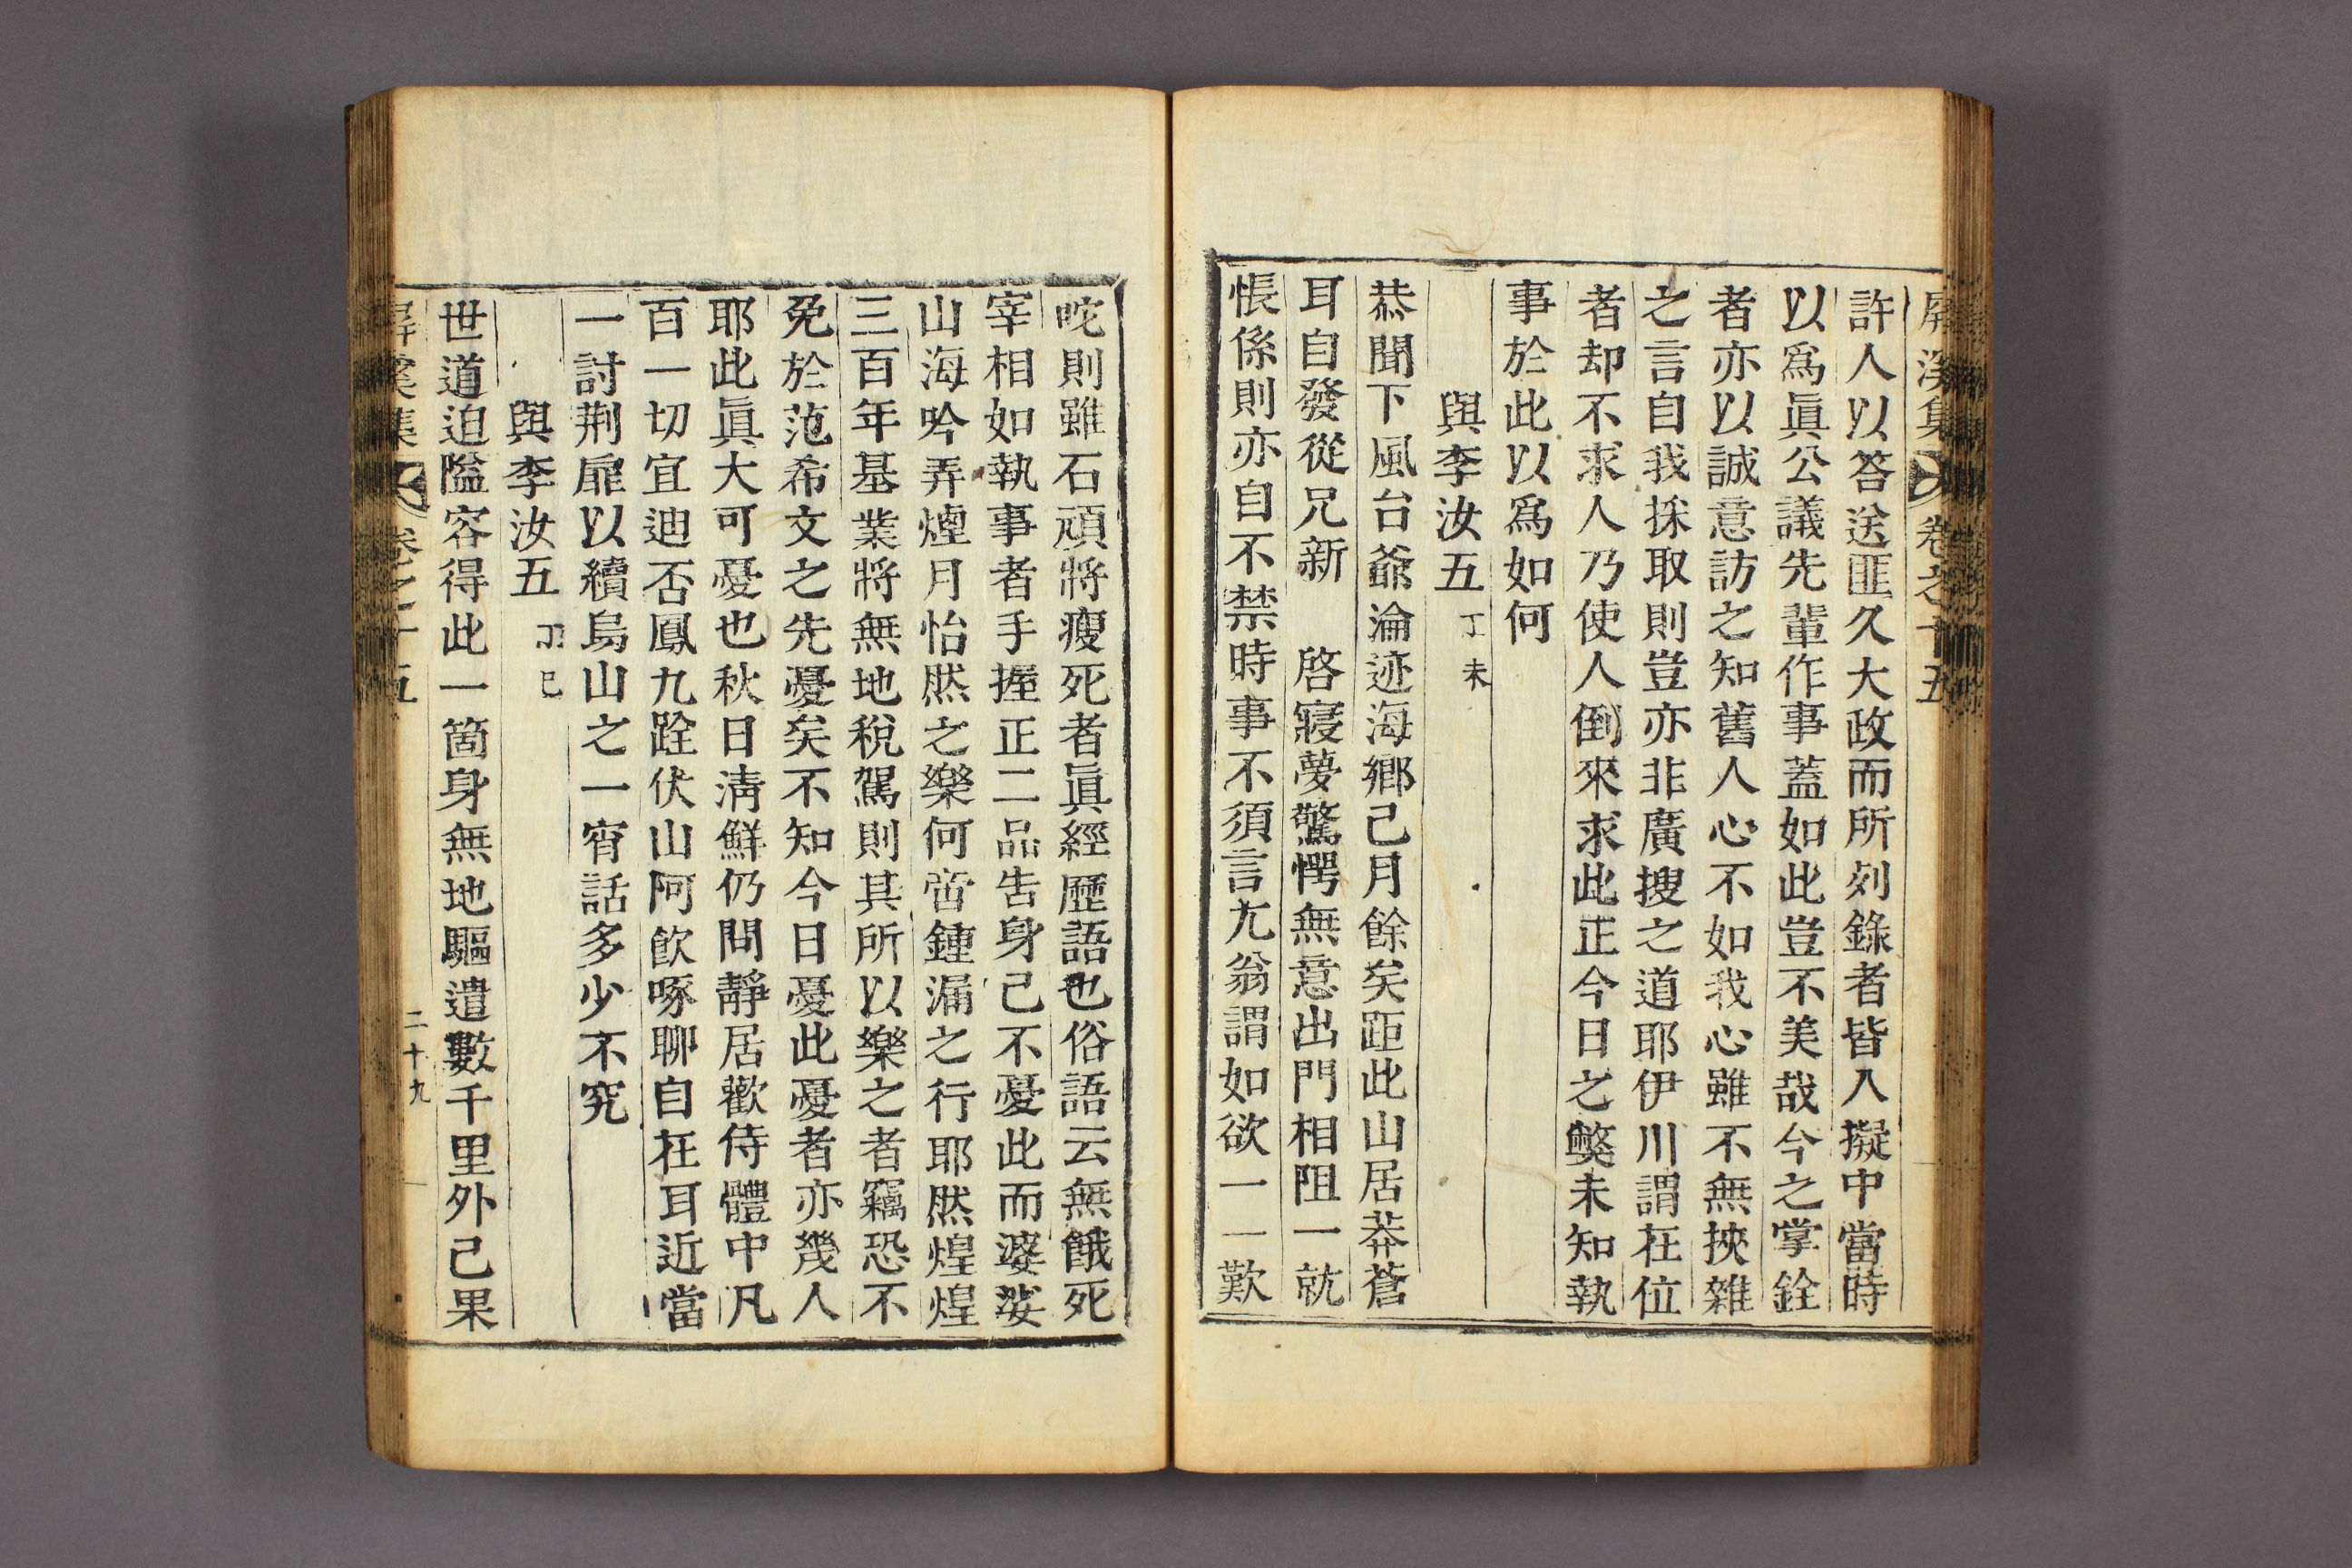 屏溪集 卷之十五
許人以答送匪久大政而所刿錄者皆入擬中當時
以爲眞公議先輩作事蓋如此豈不美哉今之掌銓
者亦以誠意訪之知舊人心不如我心雖不無挾雜
之言自我採取則豈亦非廣搜之道耶伊川謂在位
者却不求人乃使人倒來求此正今日之獘未知執
事於此以爲如何
與李汝五 丁未
恭聞下風台爺淪迹海鄉已月餘矣距此山居莽蒼
耳自發從兄新 啓寢夢驚愕無意出門相阻一就
悵係則亦自不禁時事不須言尤翁謂如欲一一歎
咜則雖石頑將瘦死者眞經歷語也俗語云無餓死
宰相如執事者手握正二品告身己不憂此而婆娑
山海吟弄煙月怡然之樂何啻鍾漏之行耶然煌煌
三百年基業將無地稅駕則其所以樂之者竊恐不
免於范希文之先憂矣不知今日憂此憂者亦幾人
耶此眞大可憂也秋日淸鮮仍問靜居歡侍體中凡
百一切宜迪否鳳九跧伏山阿飮啄聊自在耳近當
一討荆扉以續烏山之一宵話多少不究
與李汝五 丁巳
世道迫隘容得此一箇身無地驅遣數千里外己果
屏溪集 卷之十五 二十九